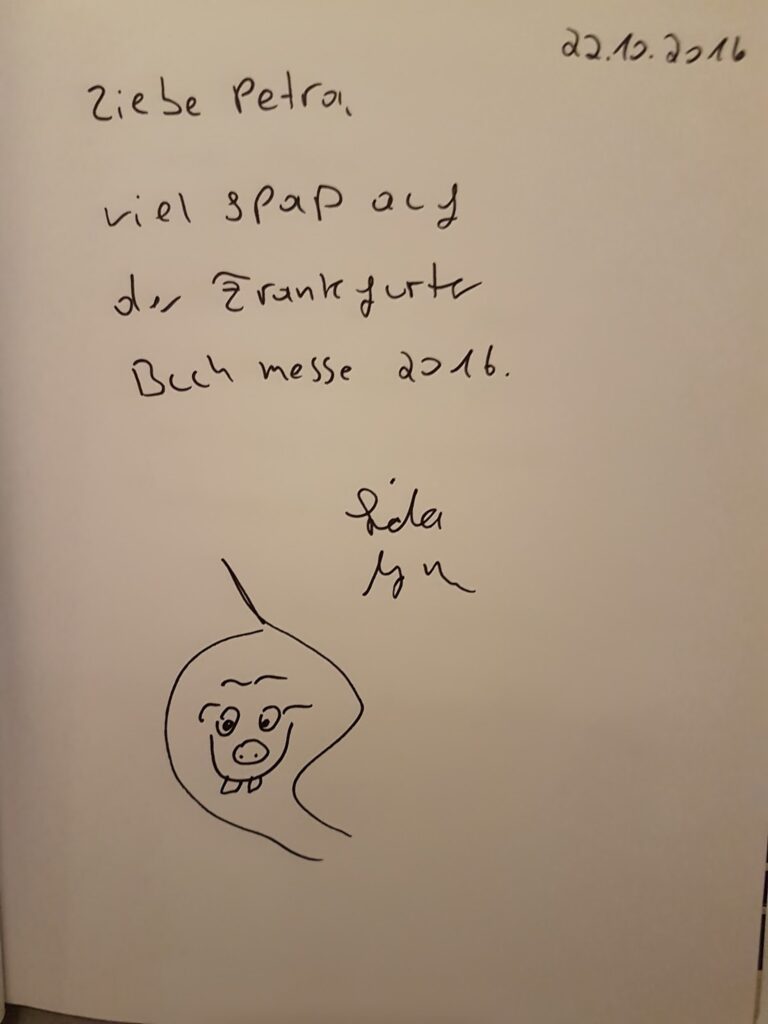 22.10.2016
Liebe Petra,
viel Spaß auf
der Frankfurter
Buch messe 2016.